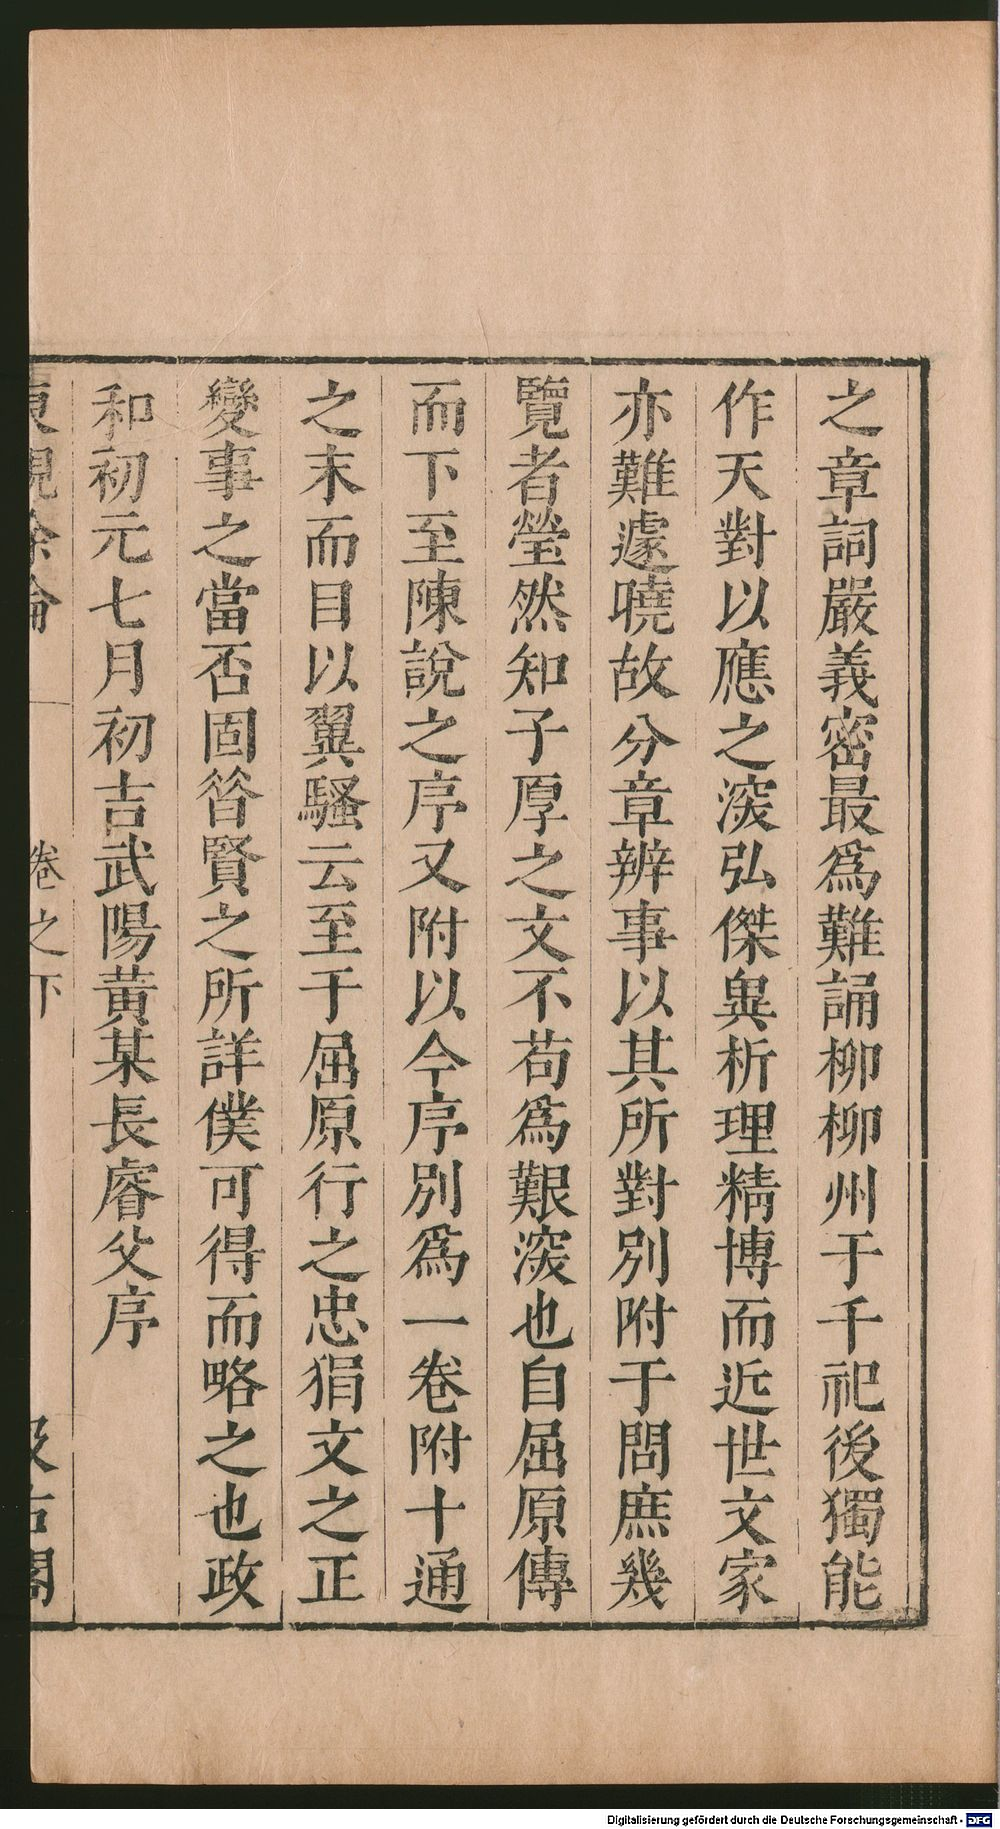 之章詞嚴義密最爲難誦柳柳州于千祀後獨能
作天對以應之深弘傑異析理精博而近世文家
亦難遽曉故分章辨事以其所對別附于問庶幾
覽者瑩然知子厚之文不苟爲艱深也自屈原傳
而下至陳說之序又附以今序別爲一卷附十通
之末而目以翼騷云至于屈原行之忠狷文之正
變事之當否固昝賢之所詳僕可得而略之也政
和初元七月初吉武陽黃某長睿父序
東觀餘論 卷之下 汲古閣
Digitalisierung gefördert durch die Deutsche Forschungsgemeinschaft - DFG